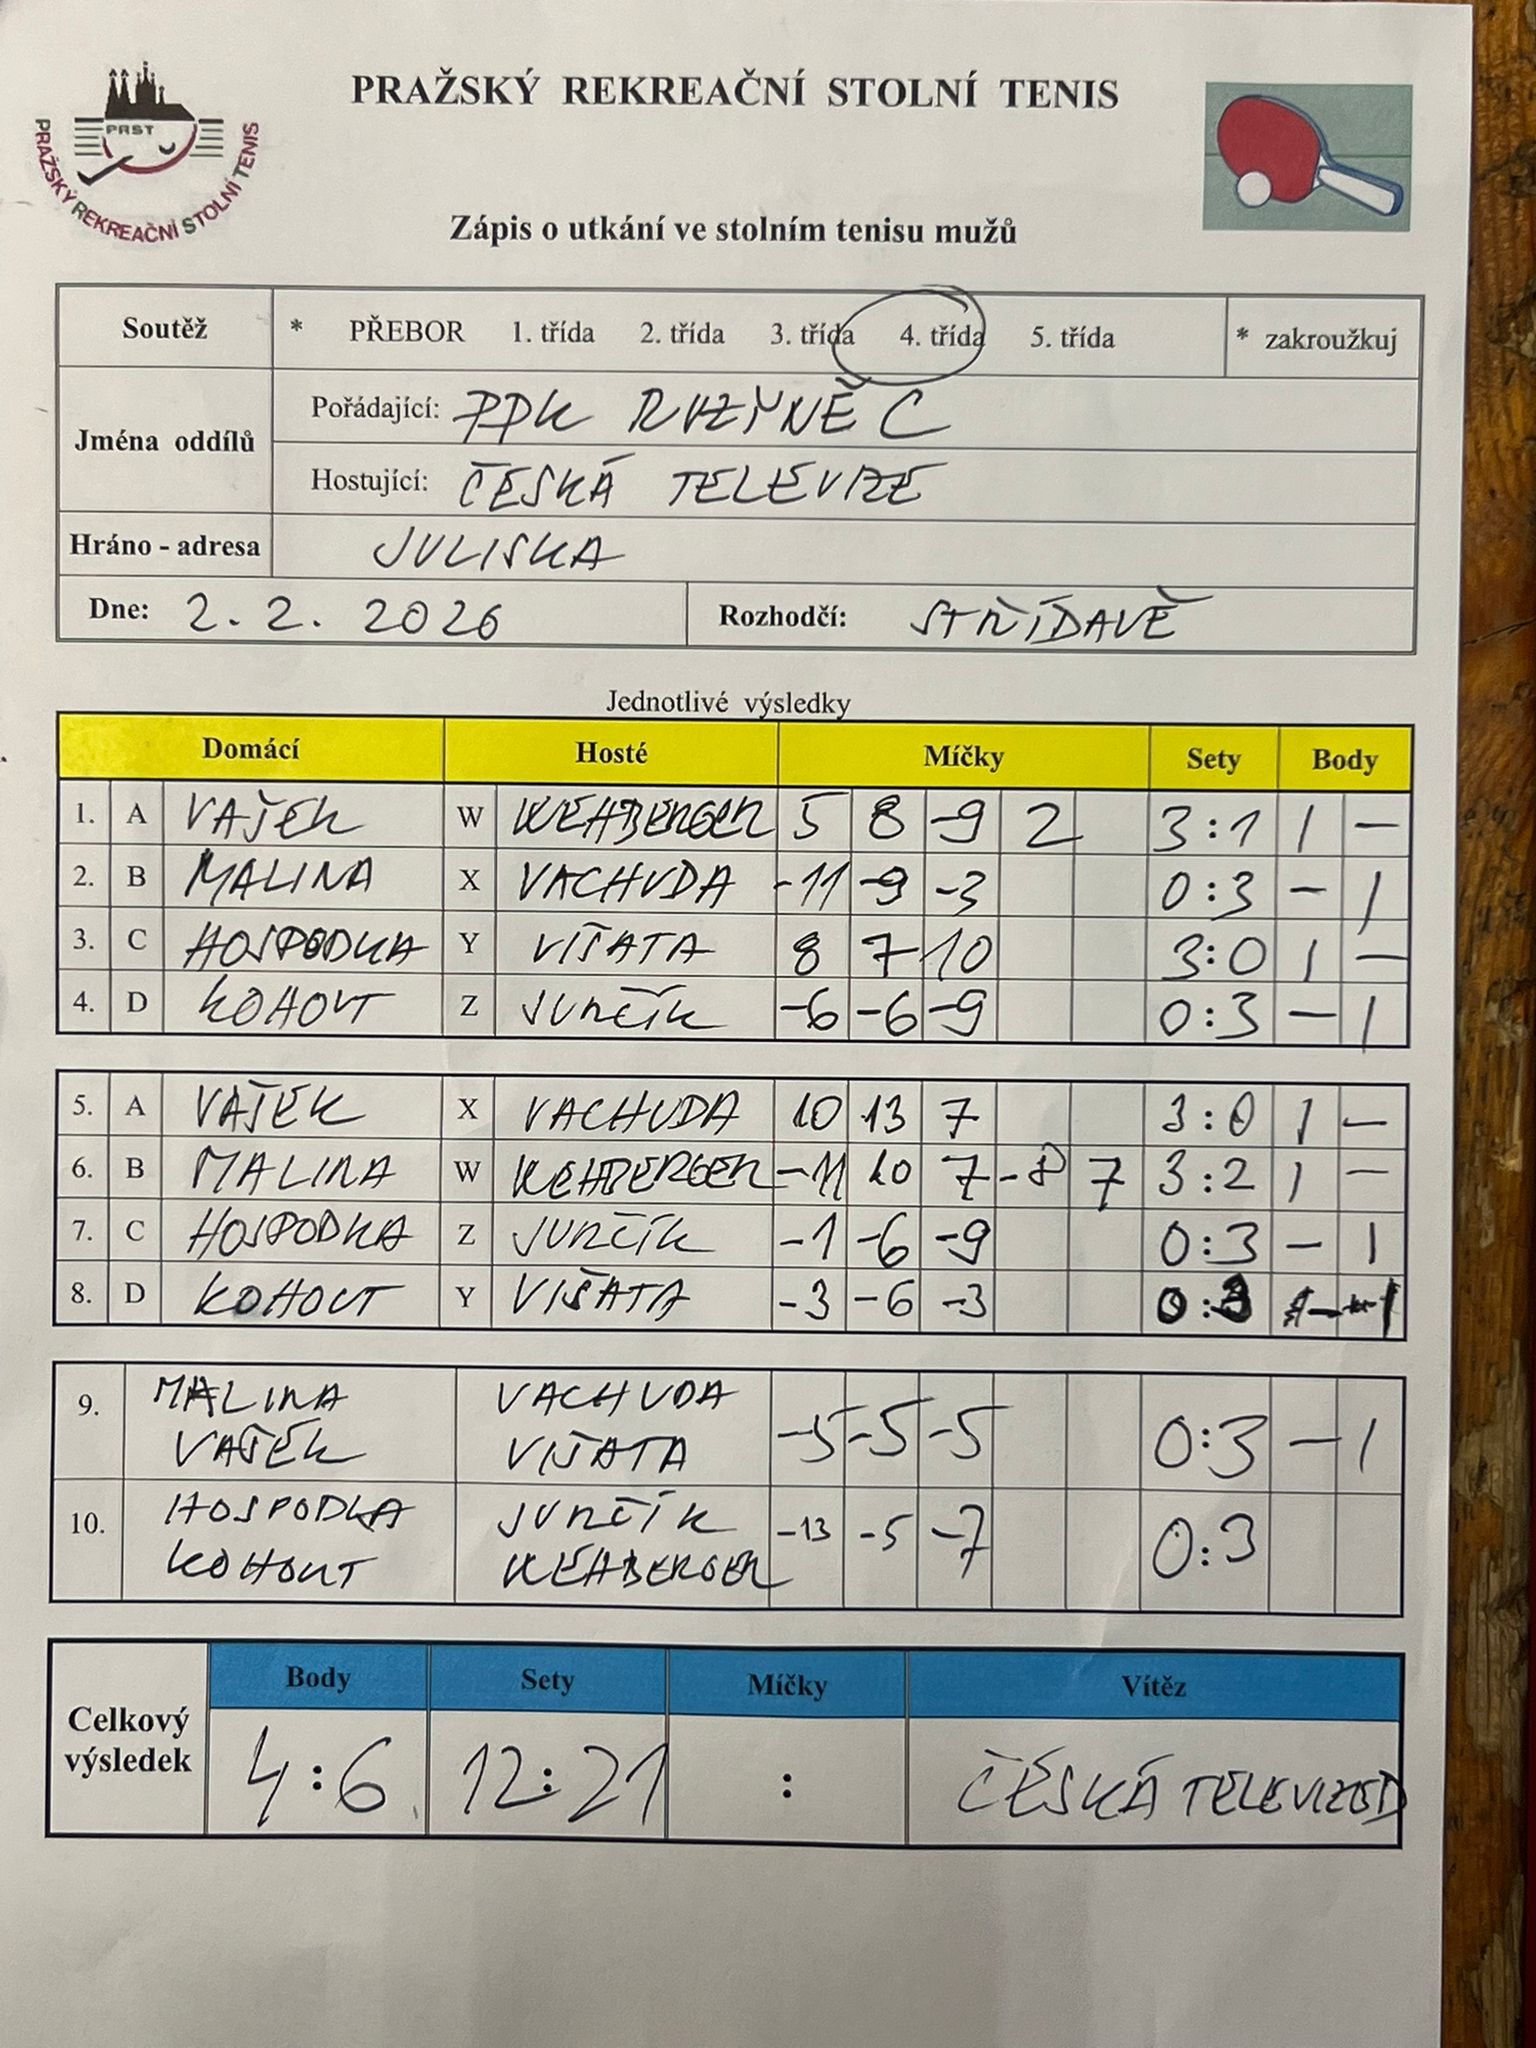 PRAŽSKÝ REKREAČNÍ STOLNÍ TENIS
PRST
PRAŽSKÝ REKREAČNÍ STOLNÍ TENIS
Zápis o utkání ve stolním tenisu mužů
Soutěž * PŘEBOR 1. třída 2. třída 3. třída 4. třída 5. třída * zakroužkuj
Jména oddílů
Pořádající: PPK RUZYNĚ C
Hostující: ČESKÁ TELEVIZE
Hráno - adresa JULISKA
Dne: 2. 2. 2026 Rozhodčí: STŘÍDAVĚ
Jednotlivé výsledky
Domácí Hosté Míčky Sety Body
1. A VAŠEK W KEHBERGER 5 8 -9 2 3:1 1 -
2. B MALINA X VACHUDA -11 -9 -3 0:3 - 1
3. C HOSPODKA Y VIŠATA 8 7 10 3:0 1 -
4. D KOHOUT Z JURČÍK -6 -6 -9 0:3 - 1
5. A VAŠEK X VACHUDA 10 13 7 3:0 1 -
6. B MALINA W KEHBERGER -11 10 7 -8 7 3:2 1 -
7. C HOSPODKA Z JURČÍK -1 -6 -9 0:3 - 1
8. D KOHOUT Y VIŠATA -3 -6 -3 0:3 - 1
9. MALINA VACHUDA -5 -5 -5 0:3 - 1
VAŠEK VIŠATA
10. HOSPODKA JURČÍK -13 -5 -7 0:3
KOHOUT KEHBERGER
Celkový výsledek
Body Sety Míčky Vítěz
4:6 12:21 : ČESKÁ TELEVIZE D